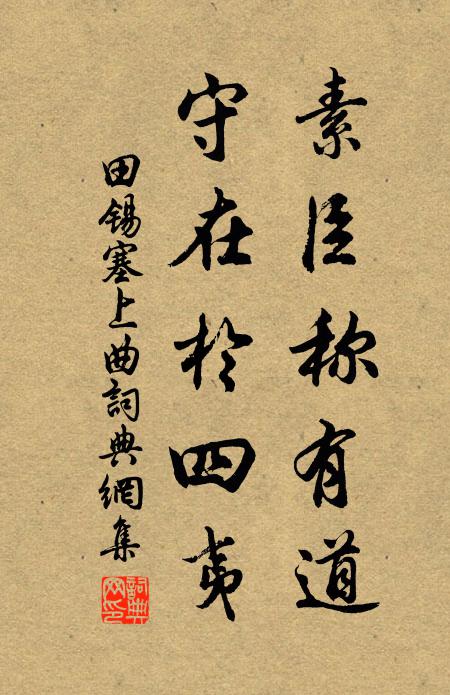 素臣称有道
守在於四夷
田锡塞上曲詞典網集
詞典网印